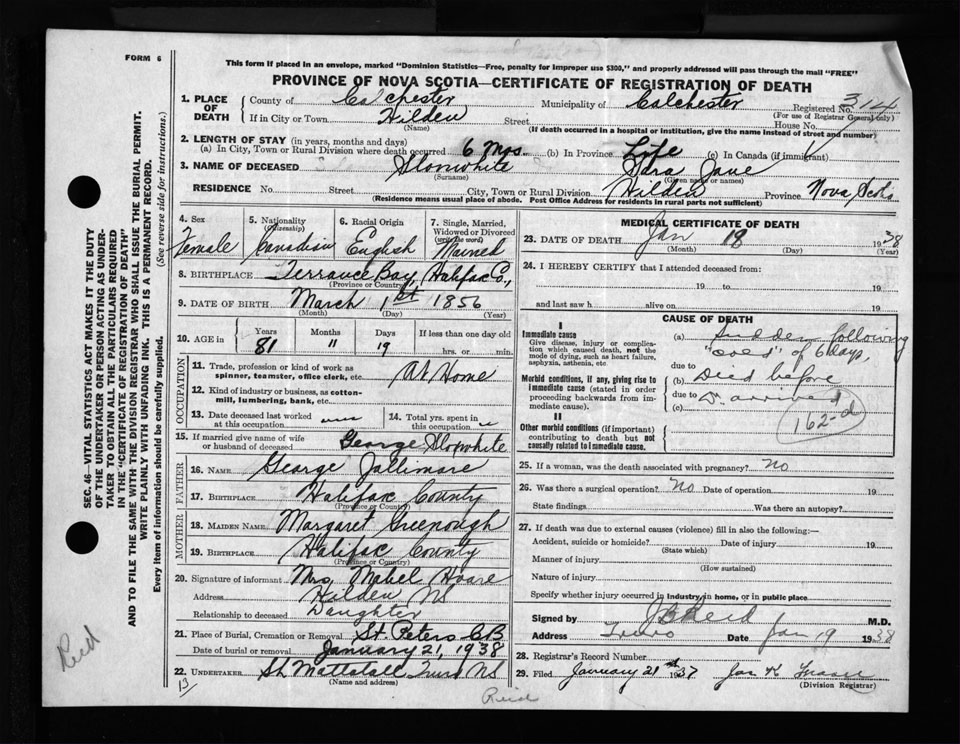 FORM 6
This form if placed in an envelope, marked "Dominion Statistics—Free, penalty for improper use $300," and properly addressed will pass through the mail "FREE"
PROVINCE OF NOVA SCOTIA—CERTIFICATE OF REGISTRATION OF DEATH
1. PLACE OF DEATH
County of Colchester Municipality of Colchester Registered No. 314
(For use of Registrar General only)
If in City or Town Hilden Street House No.
(Name) (If death occurred in a hospital or institution, give the name instead of street and number)
2. LENGTH OF STAY (in years, months and days)
(a) In City, Town or Rural Division where death occurred 6 mos. (b) In Province Life (c) In Canada (if immigrant)
3. NAME OF DECEASED Slowwhite Sara Jane
(Surname) (Given name or names)
RESIDENCE No. Street City, Town or Rural Division Hilden Province Nova Scotia
(Residence means usual place of abode. Post Office Address for residents in rural parts not sufficient)
4. Sex Female
5. Nationality (Citizenship) Canadian
6. Racial Origin English
7. Single, Married, Widowed or Divorced (write the word) Married
8. BIRTHPLACE Terrance Bay, Halifax Co.,
(Province or Country)
9. DATE OF BIRTH March 1st 1856
(Month) (Day) (Year)
10. AGE in Years Months Days If less than one day old
81 11 19 hrs. or min.
OCCUPATION
11. Trade, profession or kind of work as spinner, teamster, office clerk, etc. At Home
12. Kind of industry or business, as cotton-mill, lumbering, bank, etc.
13. Date deceased last worked at this occupation
14. Total yrs. spent in this occupation
15. If married give name of wife or husband of deceased George Slowwhite
FATHER
16. NAME George Jollimore
17. BIRTHPLACE Halifax County
(Province or Country)
MOTHER
18. MAIDEN NAME Margaret Greenough
19. BIRTHPLACE Halifax County
(Province or Country)
20. Signature of informant Mrs Mabel Hoare
Address Hilden NS
Relationship to deceased Daughter
21. Place of Burial, Cremation or Removal St. Peters CB
Date of burial or removal January 21, 1938
22. UNDERTAKER Mattatall Truro NS
(Name and address)
13
MEDICAL CERTIFICATE OF DEATH
23. DATE OF DEATH Jan 18 1938
(Month) (Day) (Year)
24. I HEREBY CERTIFY that I attended deceased from:
19 to 19
and last saw h alive on 19
CAUSE OF DEATH
I
Immediate cause
Give disease, injury or complication which caused death, not the mode of dying, such as heart failure, asphyxia, asthenia, etc
(a) Sudden following
"cold" of 6 days,
due to
Morbid conditions, if any, giving rise to immediate cause (stated in order proceeding backwards from immediate cause).
(b) Died before
due to Dr arrived
(c)
162-d
II
Other morbid conditions (if important) contributing to death but not causally related to immediate cause.
25. If a woman, was the death associated with pregnancy? No
26. Was there a surgical operation? No Date of operation 19
State findings Was there an autopsy?
27. If death was due to external causes (violence) fill in also the following:—
Accident, suicide or homicide? Date of injury 19
(State which)
Manner of injury
(How sustained)
Nature of injury
Specify whether injury occurred in industry, in home, or in public place
Signed by Reid M.D.
Address Truro Date Jan 19 1938
28. Registrar's Record Number
29. Filed January 21st 1937
(Division Registrar)
Reid
SEC. 46—VITAL STATISTICS ACT MAKES IT THE DUTY
OF THE UNDERTAKER OR PERSON ACTING AS UNDER-
TAKER TO OBTAIN ALL THE PARTICULARS REQUIRED
IN THE "CERTIFICATE OF REGISTRATION OF DEATH"
AND TO FILE THE SAME WITH THE DIVISION REGISTRAR WHO SHALL ISSUE THE BURIAL PERMIT.
WRITE PLAINLY WITH UNFADING INK. THIS IS A PERMANENT RECORD.
Every item of information should be carefully supplied. (See reverse side for instructions.)
Reid